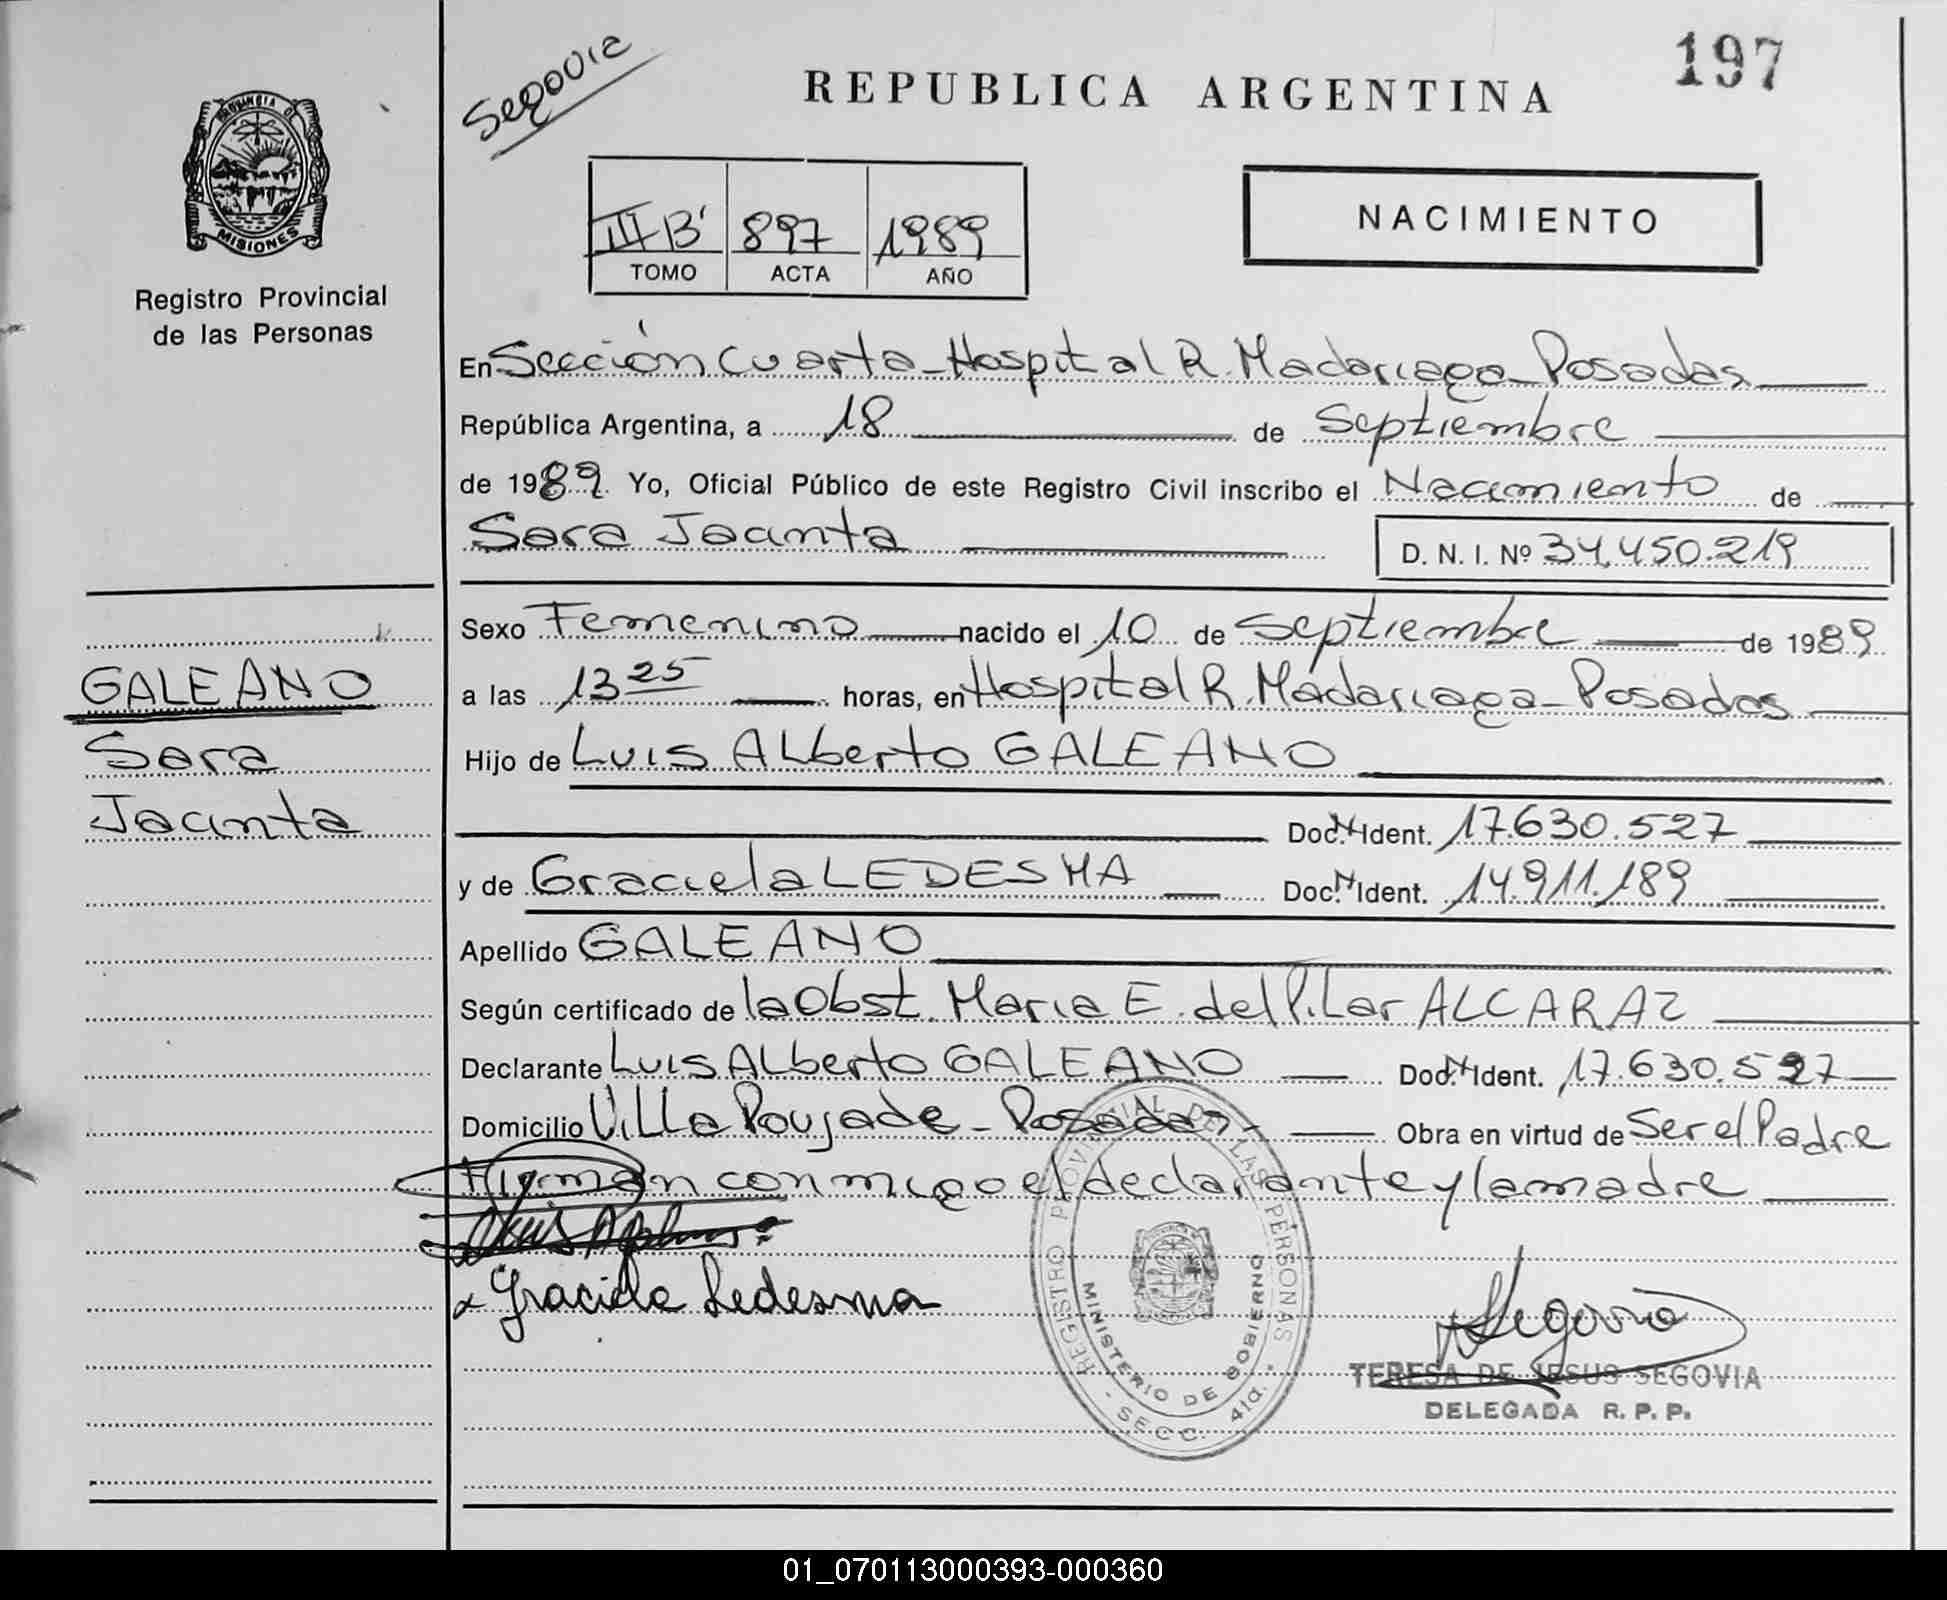 Segovia
REPUBLICA ARGENTINA
197
PROVINCIA DE
MISIONES
Registro Provincial
de las Personas
III B' 897 1989
TOMO ACTA AÑO
NACIMIENTO
En Sección Cuarta - Hospital R. Madariaga - Posadas
República Argentina, a 18 de Septiembre
de 1989. Yo, Oficial Público de este Registro Civil inscribo el Nacimiento de
Sara Jacinta D. N. I. Nº 34.450.219
GALEANO
Sara
Jacinta
Sexo Femenino nacido el 10 de Septiembre de 1989
a las 13 25 horas, en Hospital R. Madariaga - Posadas
Hijo de Luis Alberto GALEANO
Doc. N Ident. 17.630.527
y de Graciela LEDESMA Doc. N Ident. 14.911.189
Apellido GALEANO
Según certificado de la Obst. Maria E. del Pilar ALCARAZ
Declarante Luis Alberto GALEANO Doc. N Ident. 17.630.527
Domicilio Villa Poujade - Posadas - Obra en virtud de Ser el Padre
Firman conmigo el declarante y la madre
Graciela Ledesma
REGISTRO PROVINCIAL DE LAS PERSONAS
MINISTERIO DE GOBIERNO
- SECC. 4ta. -
Segovia
TERESA DE JESUS SEGOVIA
DELEGADA R. P. P.
01_070113000393-000360